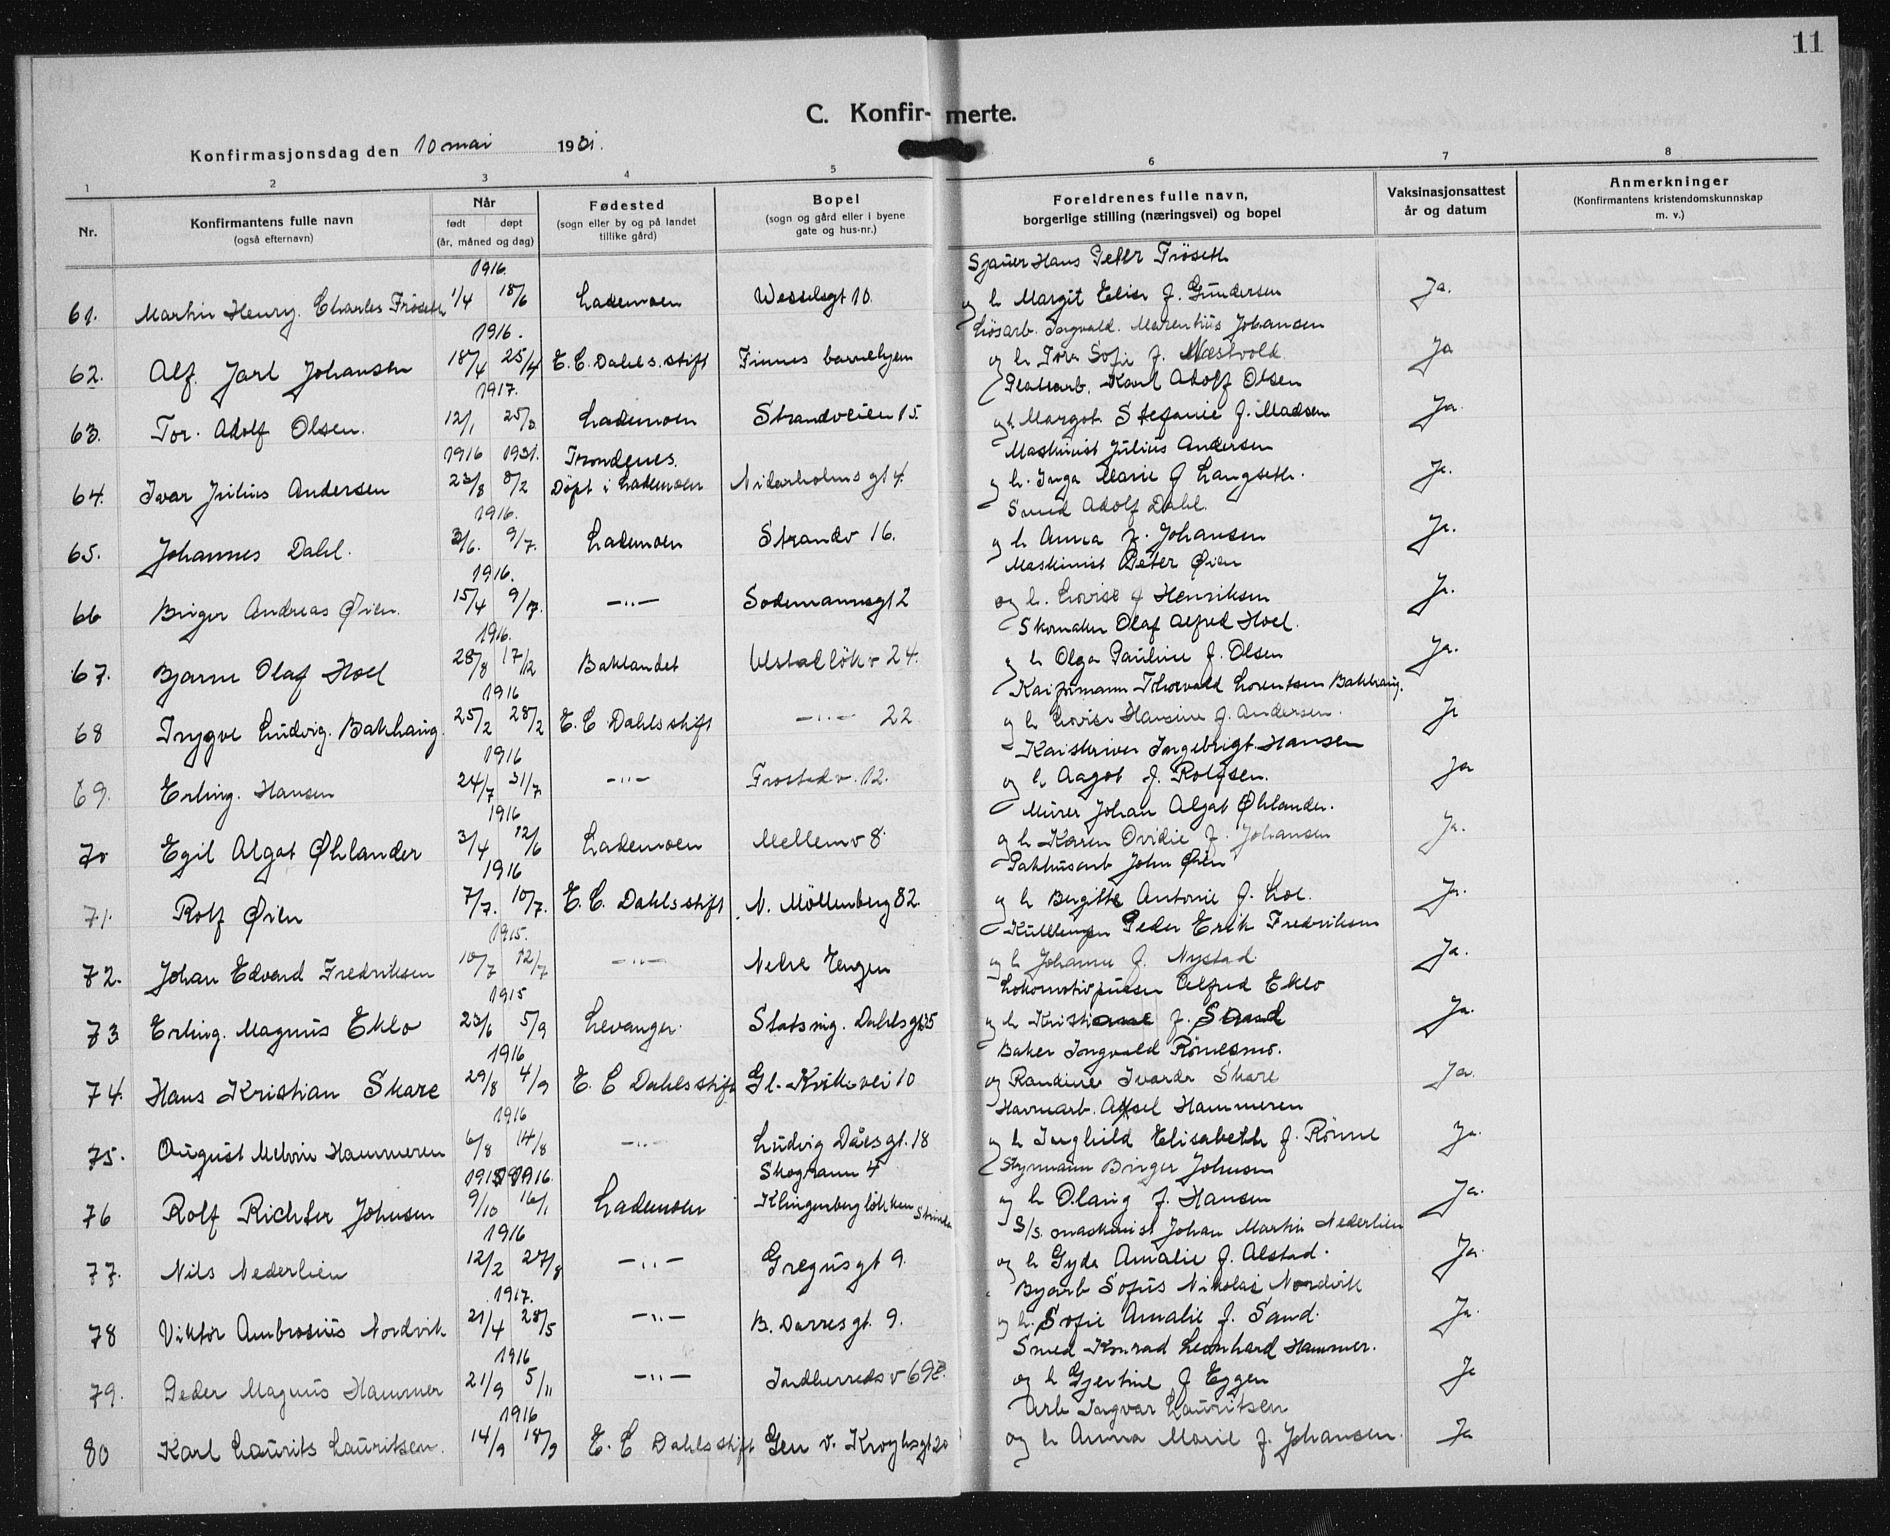 11
C. Konfir- merte.
Konfirmasjonsdag den 10 mai 1931.
1 2 3 4 5 6 7 8
Nr.
Konfirmantens fulle navn
(også efternavn)
Når
født døpt
(år, måned og dag)
Fødested
(sogn eller by og på landet
tillike gård)
Bopel
(sogn og gård eller i byene
gate og hus-nr.)
Foreldrenes fulle navn,
borgerlige stilling (næringsvei) og bopel
Vaksinasjonsattest
år og datum
Anmerkninger
(Konfirmantens kristendomskunnskap
m. v.)
1916. Sjauer Hans Peter Frøseth
61. Martin Henry. Charles Frøseth 1/4 18/6 Lademoen Wesselsgt 10. og h. Margit Elise f. Gundersen Ja.
1916. Løsarb. Ingvald. Marentius Johansen
62. Alf. Jarl Johansen 18/4 25/4 E. C. Dahls. stift Finnes barnehjem og h Tora Sofie f. Næstvold. Ja
1917. Platearb. Karl Adolf Olsen
63. Tor. Adolf Olsen. 12/1 25/3 Lademoen Strandveien 15. og h Margot Stefanie f. Madsen Ja.
1916 1931. Trondenes. Maskinist Julius Andersen
64. Ivar Julius Andersen 23/8 8/2 Døpt i Lademoen Nidarholms gt 4. og h. Inga Marie f Langseth. Ja.
1916. Smed Adolf Dahl.
65. Johannes Dahl. 3/6. 9/7. Lademoen Strandv 16. og h Anna f. Johansen Ja.
1916. Maskinist Peter Øien
66 Birger Andreas Øien. 15/4 9/7. —„— Sodemannsgt 2 og h. Lovise f Henriksen Ja.
1916. Skomaker Olaf Alfred Hoel.
67. Bjarne Olaf Hoel 28/8 17/12 Baklandet Ulstadløkv 24. og h Olga Pauline f. Olsen Ja.
1916 Kaiformann Thorvald Lorentsen Bakhaug.
68 Trygve Ludvig. Bakhaug. 25/2 28/2 E. C Dahls stift —„— 22 og h Lovise Hansine f. Andersen. Ja
1916 Kaiskriver Ingebrigt Hansen
69. Erling. Hansen 24/7 31/7. —„— Frostadv. 12. og h Aagot f. Rolfsen. Ja
1916 Murer Johan Algot Øhlander.
70 Egil Algot Øhlander 3/4 12/6 Lademoen Mellemv 8. og h Karen Ovidie f. Johansen Ja.
1916 Pakhusarb John Øien
71. Rolf Øien 7/7. 10/7. E. C. Dahls stift N. Möllenberg 82. og h Bergitte Antonie f. Loe. Ja.
1915. Peder Erik Fredriksen
72. Johan Edvard Fredriksen 10/7 12/7 —„— Nedre Engen og h Johanne f. Nystad Ja.
1915 Lokomotivpusser Alfred Eklo
73 Erling. Magnus Eklo 23/6 5/9 Levanger. Statsing. Dahlsgt 35 og h Kristiane f. Strand Ja.
1916 Baker Ingvald Rømesmo.
74. Hans Kristian Skare 29/8 4/9 E. C Dahls stift Gl. Kvikvei 10 og Randine Ivarda Skare Ja.
1916 Havnearb. Aksel Hammeren
75. August Melvin Hammeren 6/8 14/8 —„— Ludvig Dåes gt. 18 og h Inghild Elisabeth f. Rønne Ja.
1915 1916. Skogrann 4 Styrmann Birger Johnsen
76 Rolf Richter Johnsen 9/10 16/1 Lademoen Klingenberg løkken Strinda og h Olaug f. Hansen Ja.
1916 S/s. maskinist Johan Martin Nederlien
77. Nils Nederlien 12/2 27/8 —„— Gregusgt 9. og h Gyda Amalie f. Alstad. Ja.
1917. Byarb Sofus Nikolai Nordvik
78 Viktor Ambrosius Nordvik 21/4 28/5 —„— B. Darres gt. 9. og h. Sofie Amalie f. Sand. Ja.
1916 Smed Konrad Leonhard Hammer.
79. Peder Magnus Hammer 21/9 5/11 —„— Indherreds v 69 og h Gjertine f Eggen Ja
1916 Arb Ingvar Lauritsen
80 Karl Laurits Lauritsen. 14/9 18/9 E. C Dahls stift Gen v. Kroghsgt 20 og h Anna Marie f. Johansen. Ja